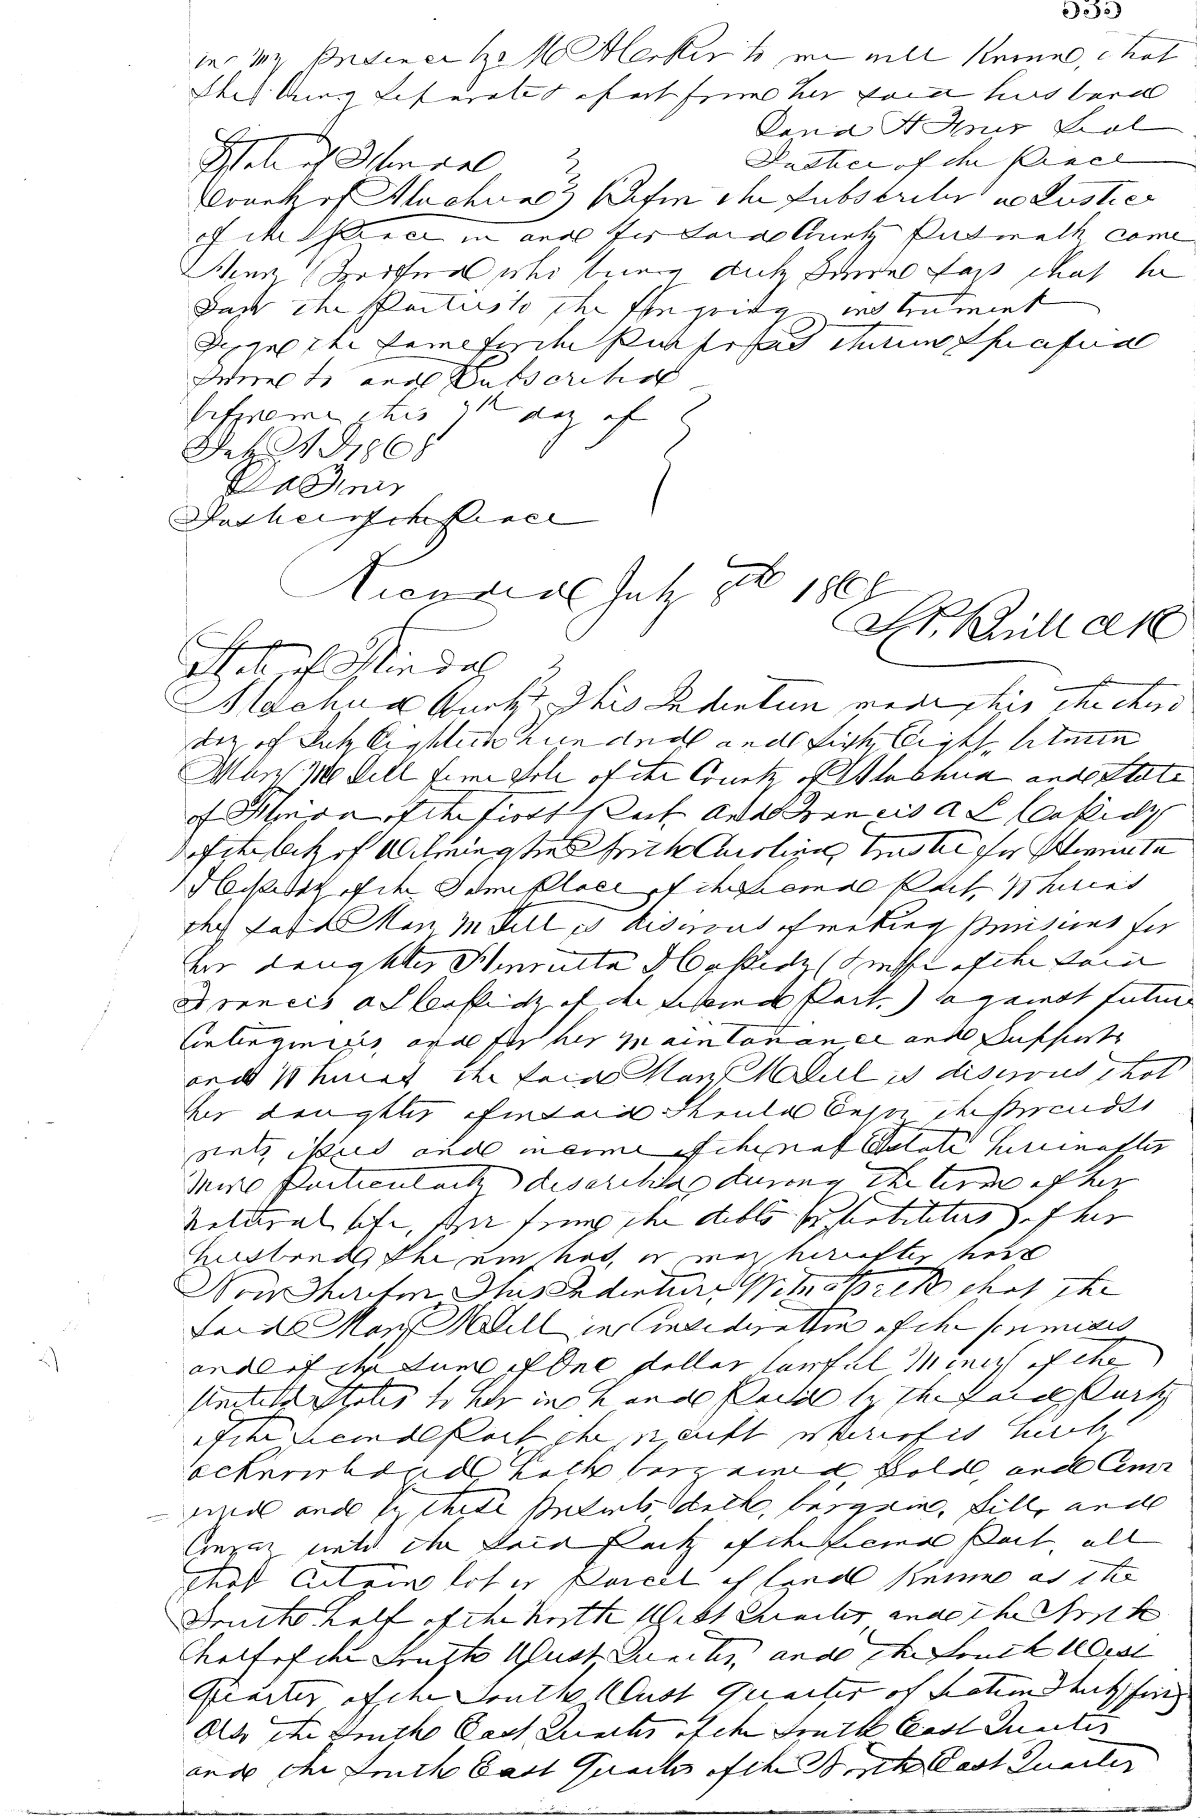 535
in my presence by M A Clerker to me well Known, that
She being Separate & apart from her said husband
David A Friers Seal
State of Florida
Justice of the Peace
County of Alachua Before the Subscriber a Justice
of the Peace in and for Said County Personally come
Henry Bradford who being duly Sworn Says that he
Saw the Parties to the foregoing instrument
Signe the Same for the Purposes therein Specified
Sworn to and Subscribed
before me this 7th day of
July A D 1868
D A
Justice of the Peace
Recorded July 8th 1868
State of Florida
Alachua County This Indenture made this the third
day of July Eighteen hundred and Sixty Eight, between
Mary McDell feme Sole of the County of Alachua and State
of Florida of the first Part and Francis A L Cassidey
of the City of Wilmington North Carolina, trustee for Henrietta
J Cassidey of the Same Place of the Second Part, Whereas
the said Mary McDell is disirous of making provisions for
her daughter Henrietta J Cassidey (wife of the Said
Francis A L Cassidey of the Second Part.) against future
Contingencies, and for her maintanance and Support
and Whereas the Said Mary McDell is disirous that
her daughter aforesaid Should Enjoy the proceeds
rents, issues and income of the real Estate hereinafter
more Particularly described during the term of her
natural life, free from the debts or liabilities of her
husband, She now has, or may hereafter have
Now Therefore This Indenture Witnesseth that the
Said Mary McDell in Consideration of the premises
and of the Sum of One dollar lawful Money of the
United States to her in hand Paid by the Said Party
of the Second Part, the receipt whereof is hereby
acknowledged hath bargained, Sold, and Conv
eyed and by these presents, doth, bargain, Sell, and
Convey unto the Said Party of the Second Part, all
that Certain lot or Parcel of land Known as the
South half of the North West Quarter, and the North
half of the South West Quarter, and the South West
Quarter of the South West Quarter of Section Thirty five
Also the South East Quarter of the South East Quarter
and the South East Quarter of the North East Quarter